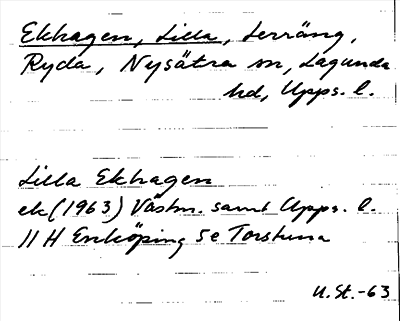 Ekhagen, Lilla, Lerräng,
Ryda, Nysätra sn, Lagunda
hd, Upps. l.
Lilla Ekhagen
ek (1963) Västm. samt Upps. l.
11 H Enköping 5e Torstuna
U. St. -63